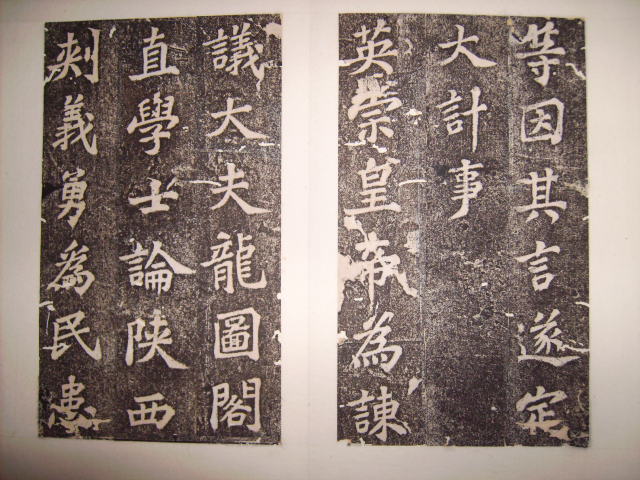 等因其言遂定
大計事
英崇皇帝為諫
議大夫龍圖閣
直學士論陝西
刺義勇為民患